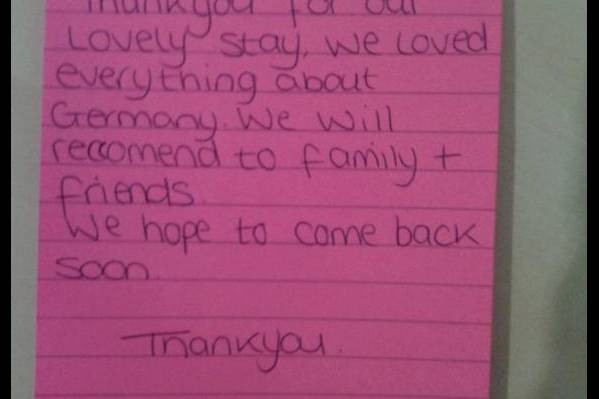 Thankyou for our
Lovely stay. We loved
everything about
Germany. We will
reccomend to family +
friends.
We hope to come back
soon.
Thankyou.